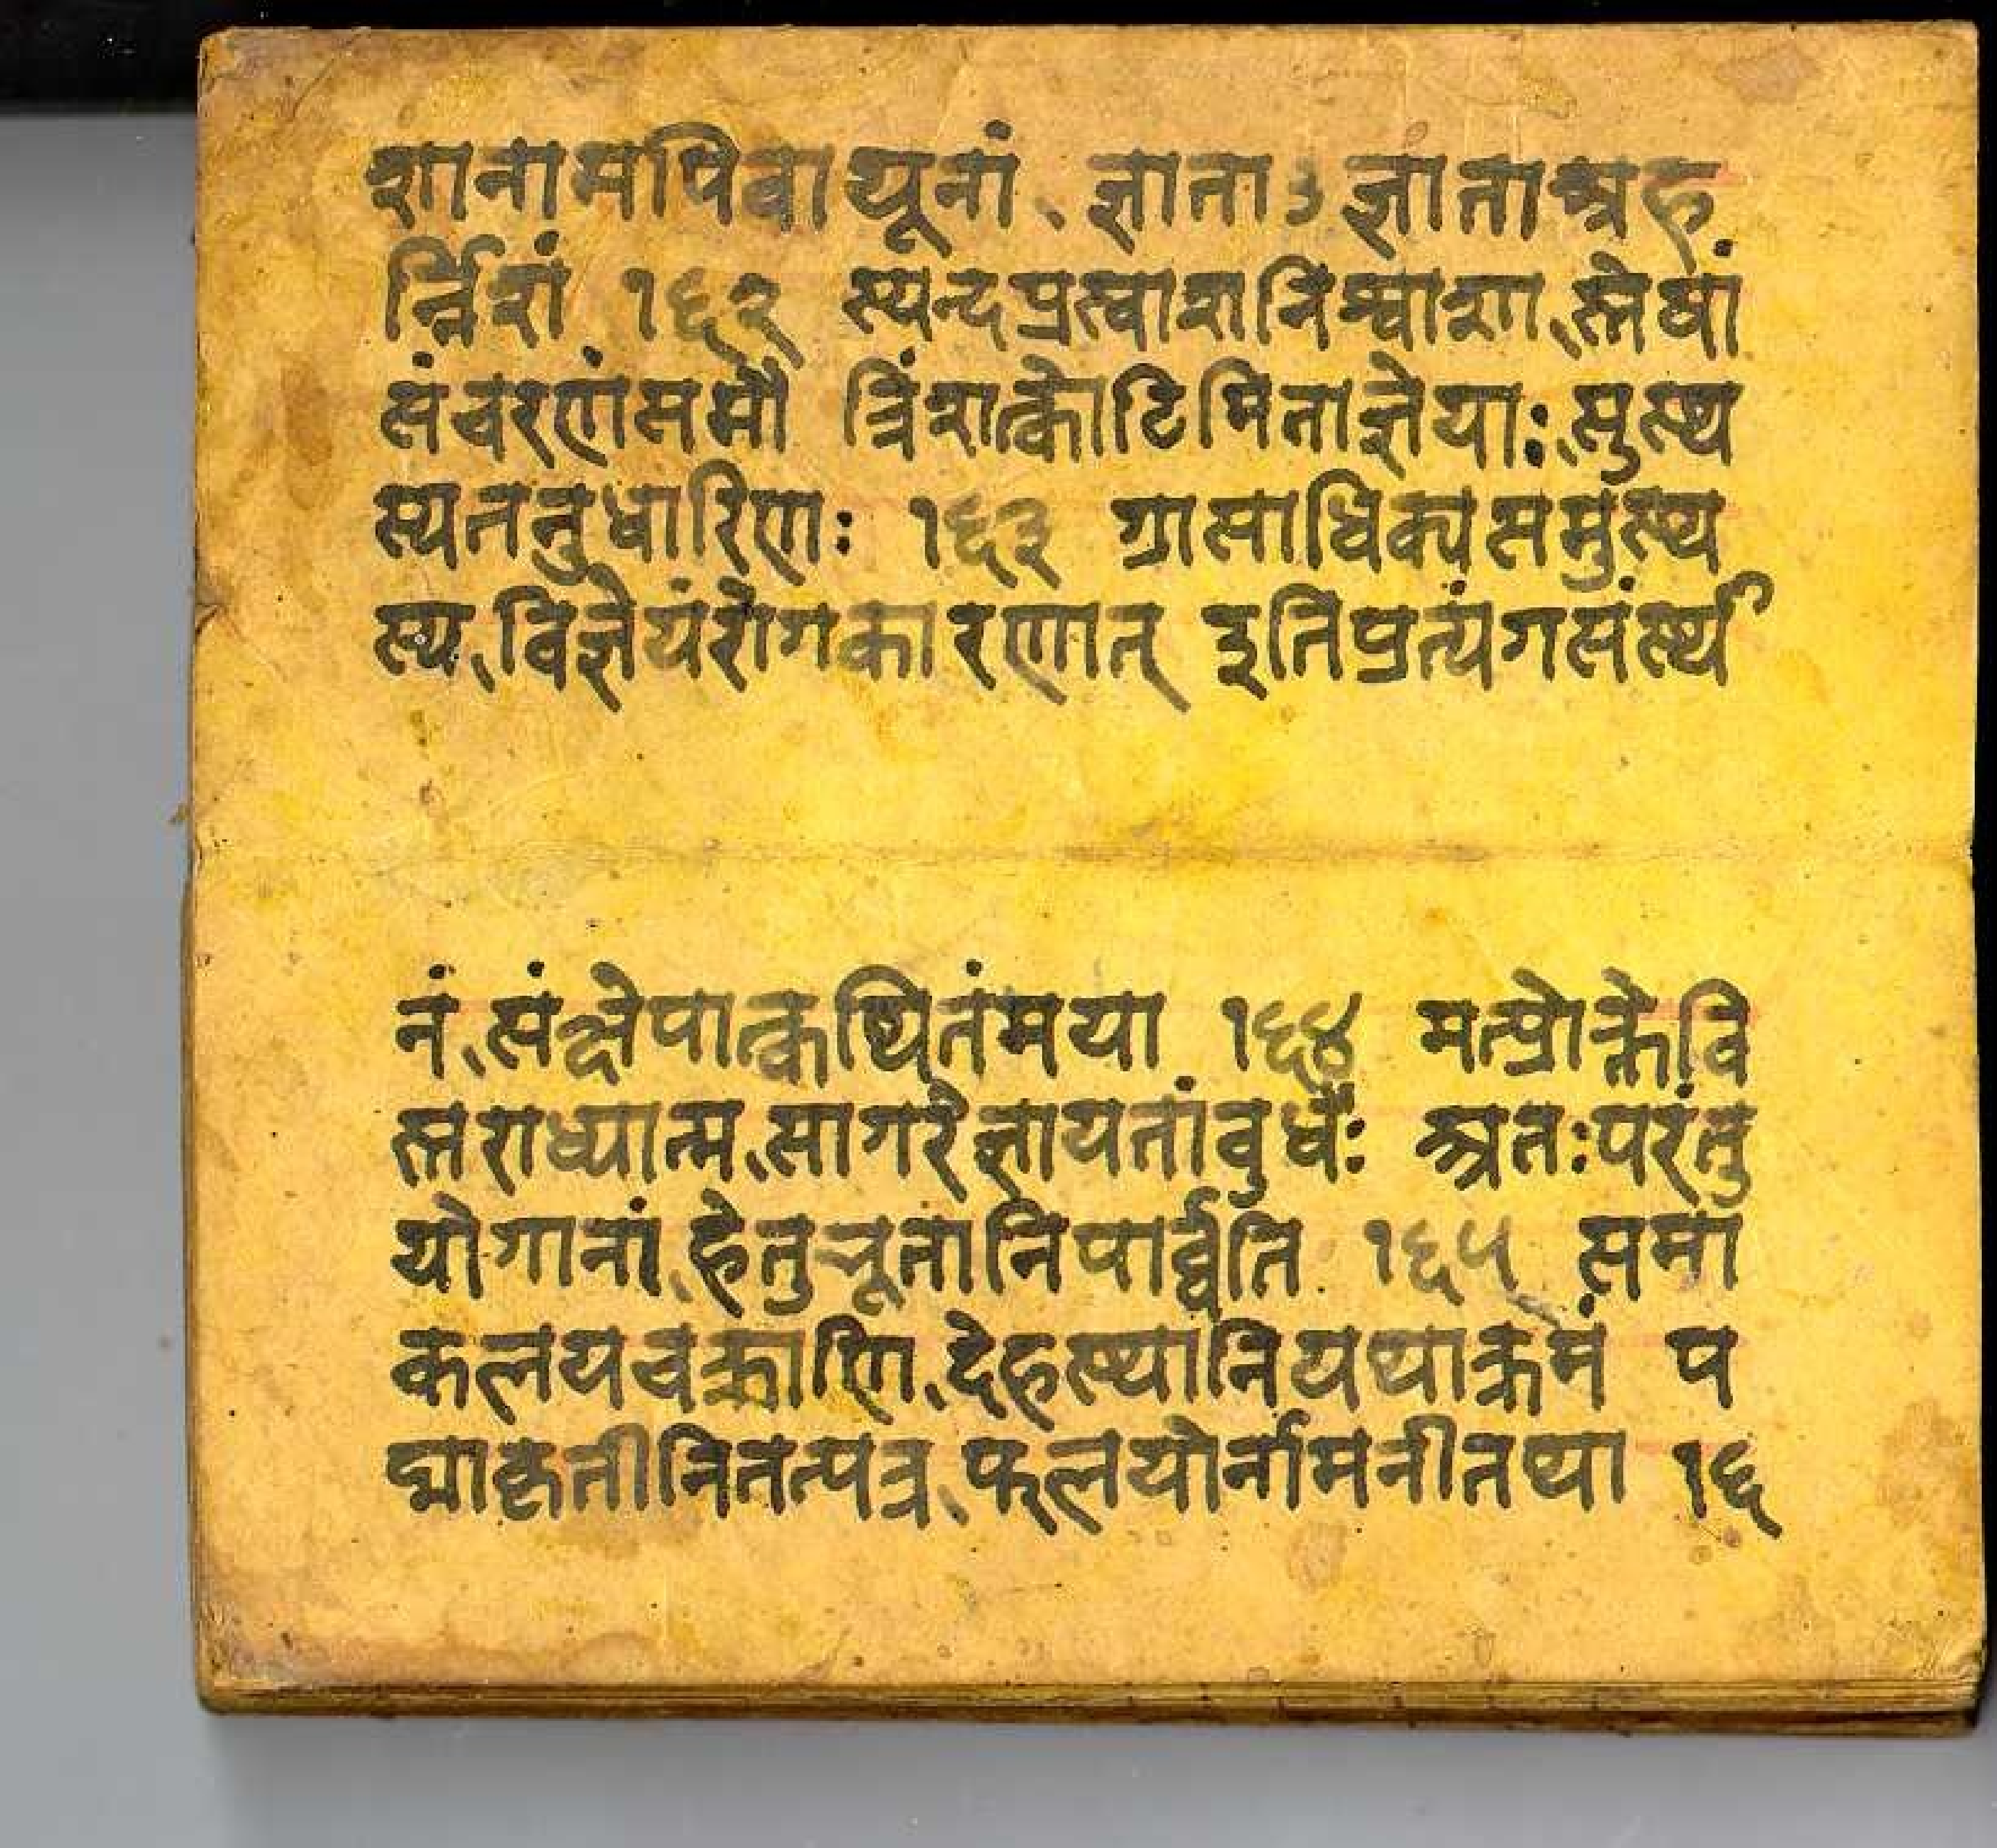 शानामपिवायूनां ज्ञाता३ज्ञाताअह
र्न्निशं १६२ स्यन्दप्रस्वाशनिश्वाशा स्तेषां
संचरणंसमौ त्रिंशत्कोटिमिताज्ञेयाः सुस्थ
स्यतनुधारिणः १६३ ग्रासाधिक्यसमुस्थ
स्य विज्ञेयंरोगकारणात् इतिप्रत्यंगसंस्थ
नं संक्षेपात्कथितंमया १६४ मत्प्रोक्तेवि
स्तराध्यात्म सागरेज्ञायतांवुधैः अतःपरंतु
योगानां हेतुभूतानिपार्व्वति १६५ समा
कलयचक्राणि देहस्थानियथाक्रमं प
द्माकृतीनितत्पत्र फलयोर्नामनीतथा १६